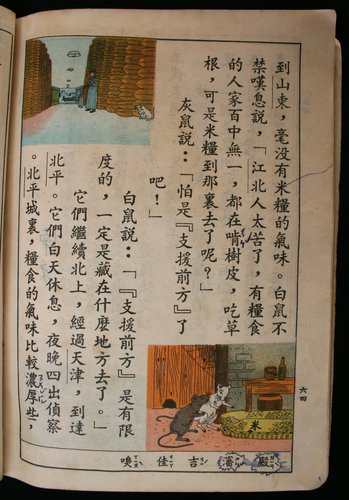 到山東，毫没有米糧的氣味。白鼠不
禁嘆息說，「江北人太苦了，有糧食
的人家百中無一，都在啃樹皮，吃草
根，可是米糧到那裏去了呢？」
灰鼠說：「怕是『支援前方』了
吧！」
白鼠說：「『支援前方』是有限
度的，一定是藏在什麼地方去了。」
它們繼續北上，經過天津，到達
北平。它們白天休息，夜晚四出偵察
。北平城裏，糧食的氣味比較濃厚些，
米
六四
殿 藩 吉 佳 唉